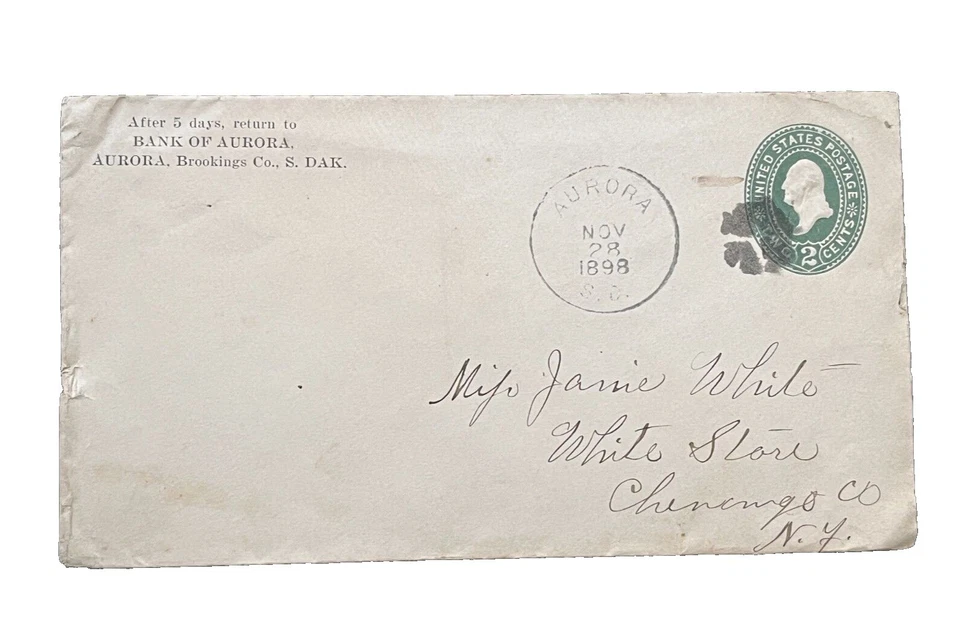 After 5 days, return to
BANK OF AURORA,
AURORA, Brookings Co., S. DAK.
AURORA
NOV
28
1898
S. D.
UNITED STATES POSTAGE
TWO 2 CENTS
Miss Janie White
White Store
Chenango Co
N. Y.